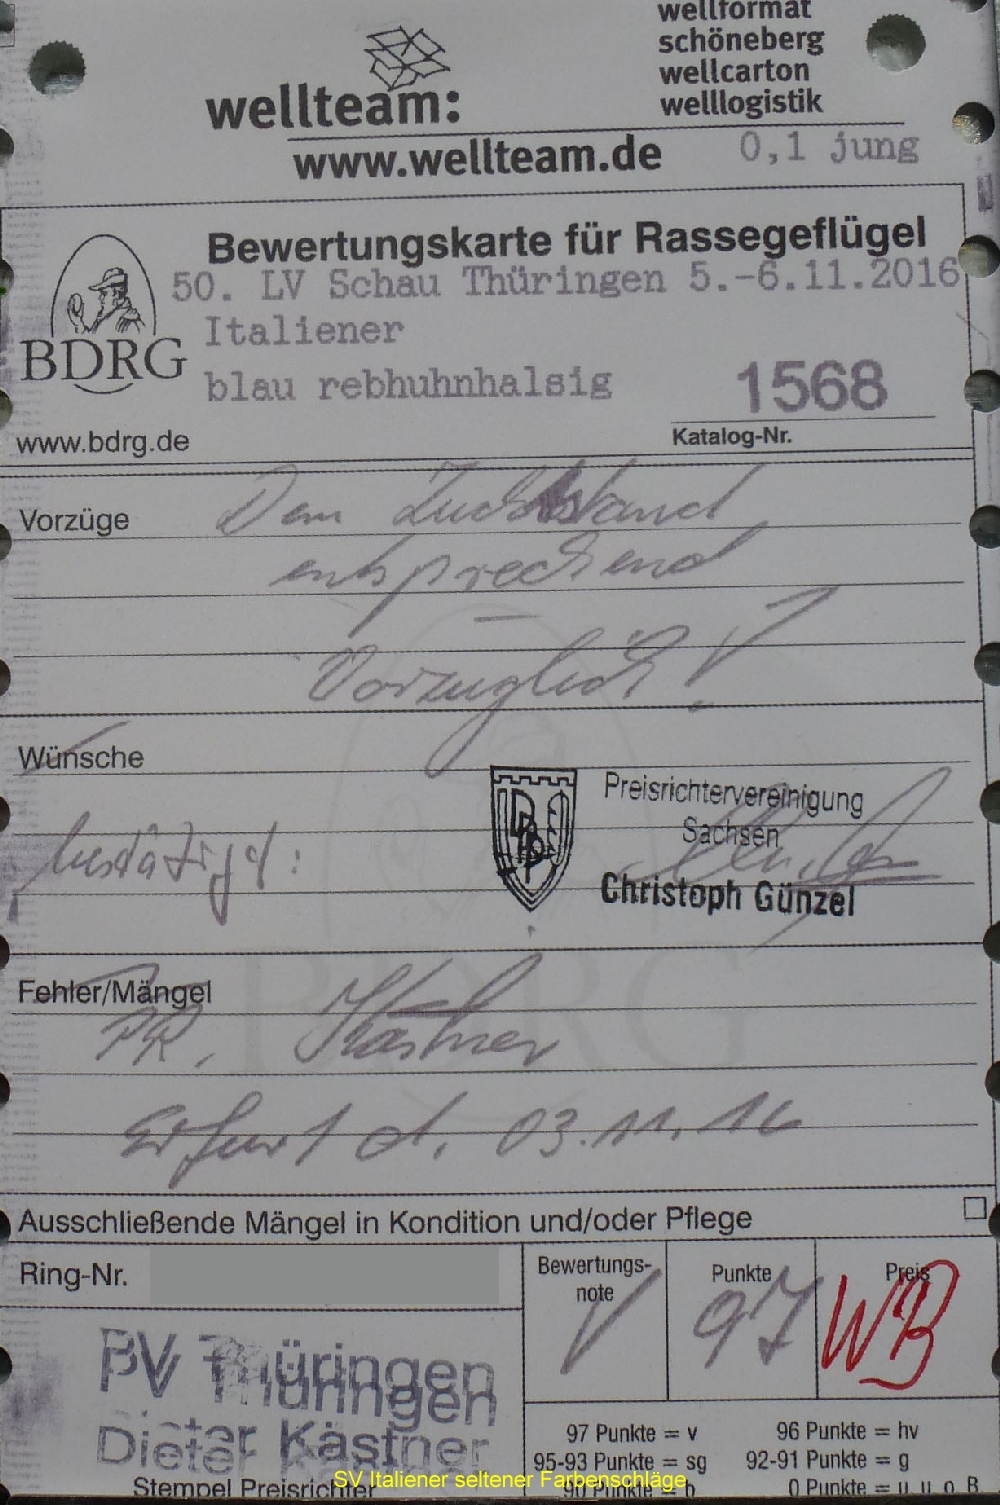 wellformat
schöneberg
wellcarton
welllogistik
wellteam:
www.wellteam.de
0,1 jung
Bewertungskarte für Rassegeflügel
50. LV Schau Thüringen 5.-6.11.2016
Italiener
BDRG
blau rebhuhnhalsig
1568
www.bdrg.de
Katalog-Nr.
Vorzüge
Dem Zuchtstand
entsprechend
-
Vorzüglich!
Wünsche
Preisrichtervereinigung
Sachsen
bestätigt:
Christoph Günzel
Fehler/Mängel
PR. Kästner
Erfurt d. 03.11.16
Ausschließende Mängel in Kondition und/oder Pflege
Ring-Nr.
Bewertungs-
note
Punkte
Preis
V
97
WB
PV Thüringen
Dieter Kästner
97 Punkte = v
96 Punkte = hv
95-93 Punkte = sg
92-91 Punkte = g
Stempel Preisrichter
90 Punkte = b
0 Punkte = u u o B
SV Italiener seltener Farbenschläge